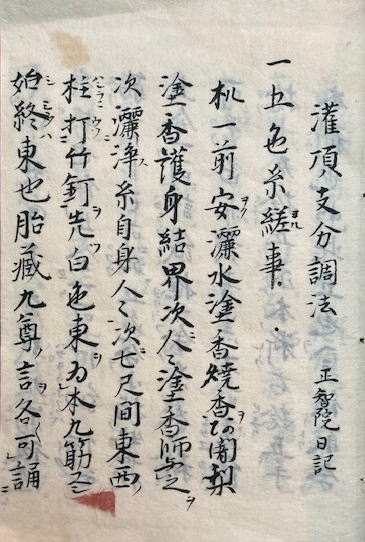 灌頂支分調法 正智院日記
一五色糸縒事
机一前安灑水塗香焼香阿闍梨
塗香護身結界次人々塗香師与之
次灑浄糸自身人々次七尺間東西
柱打竹釘先白色東為本九筋
始終東也胎蔵九尊言各可誦